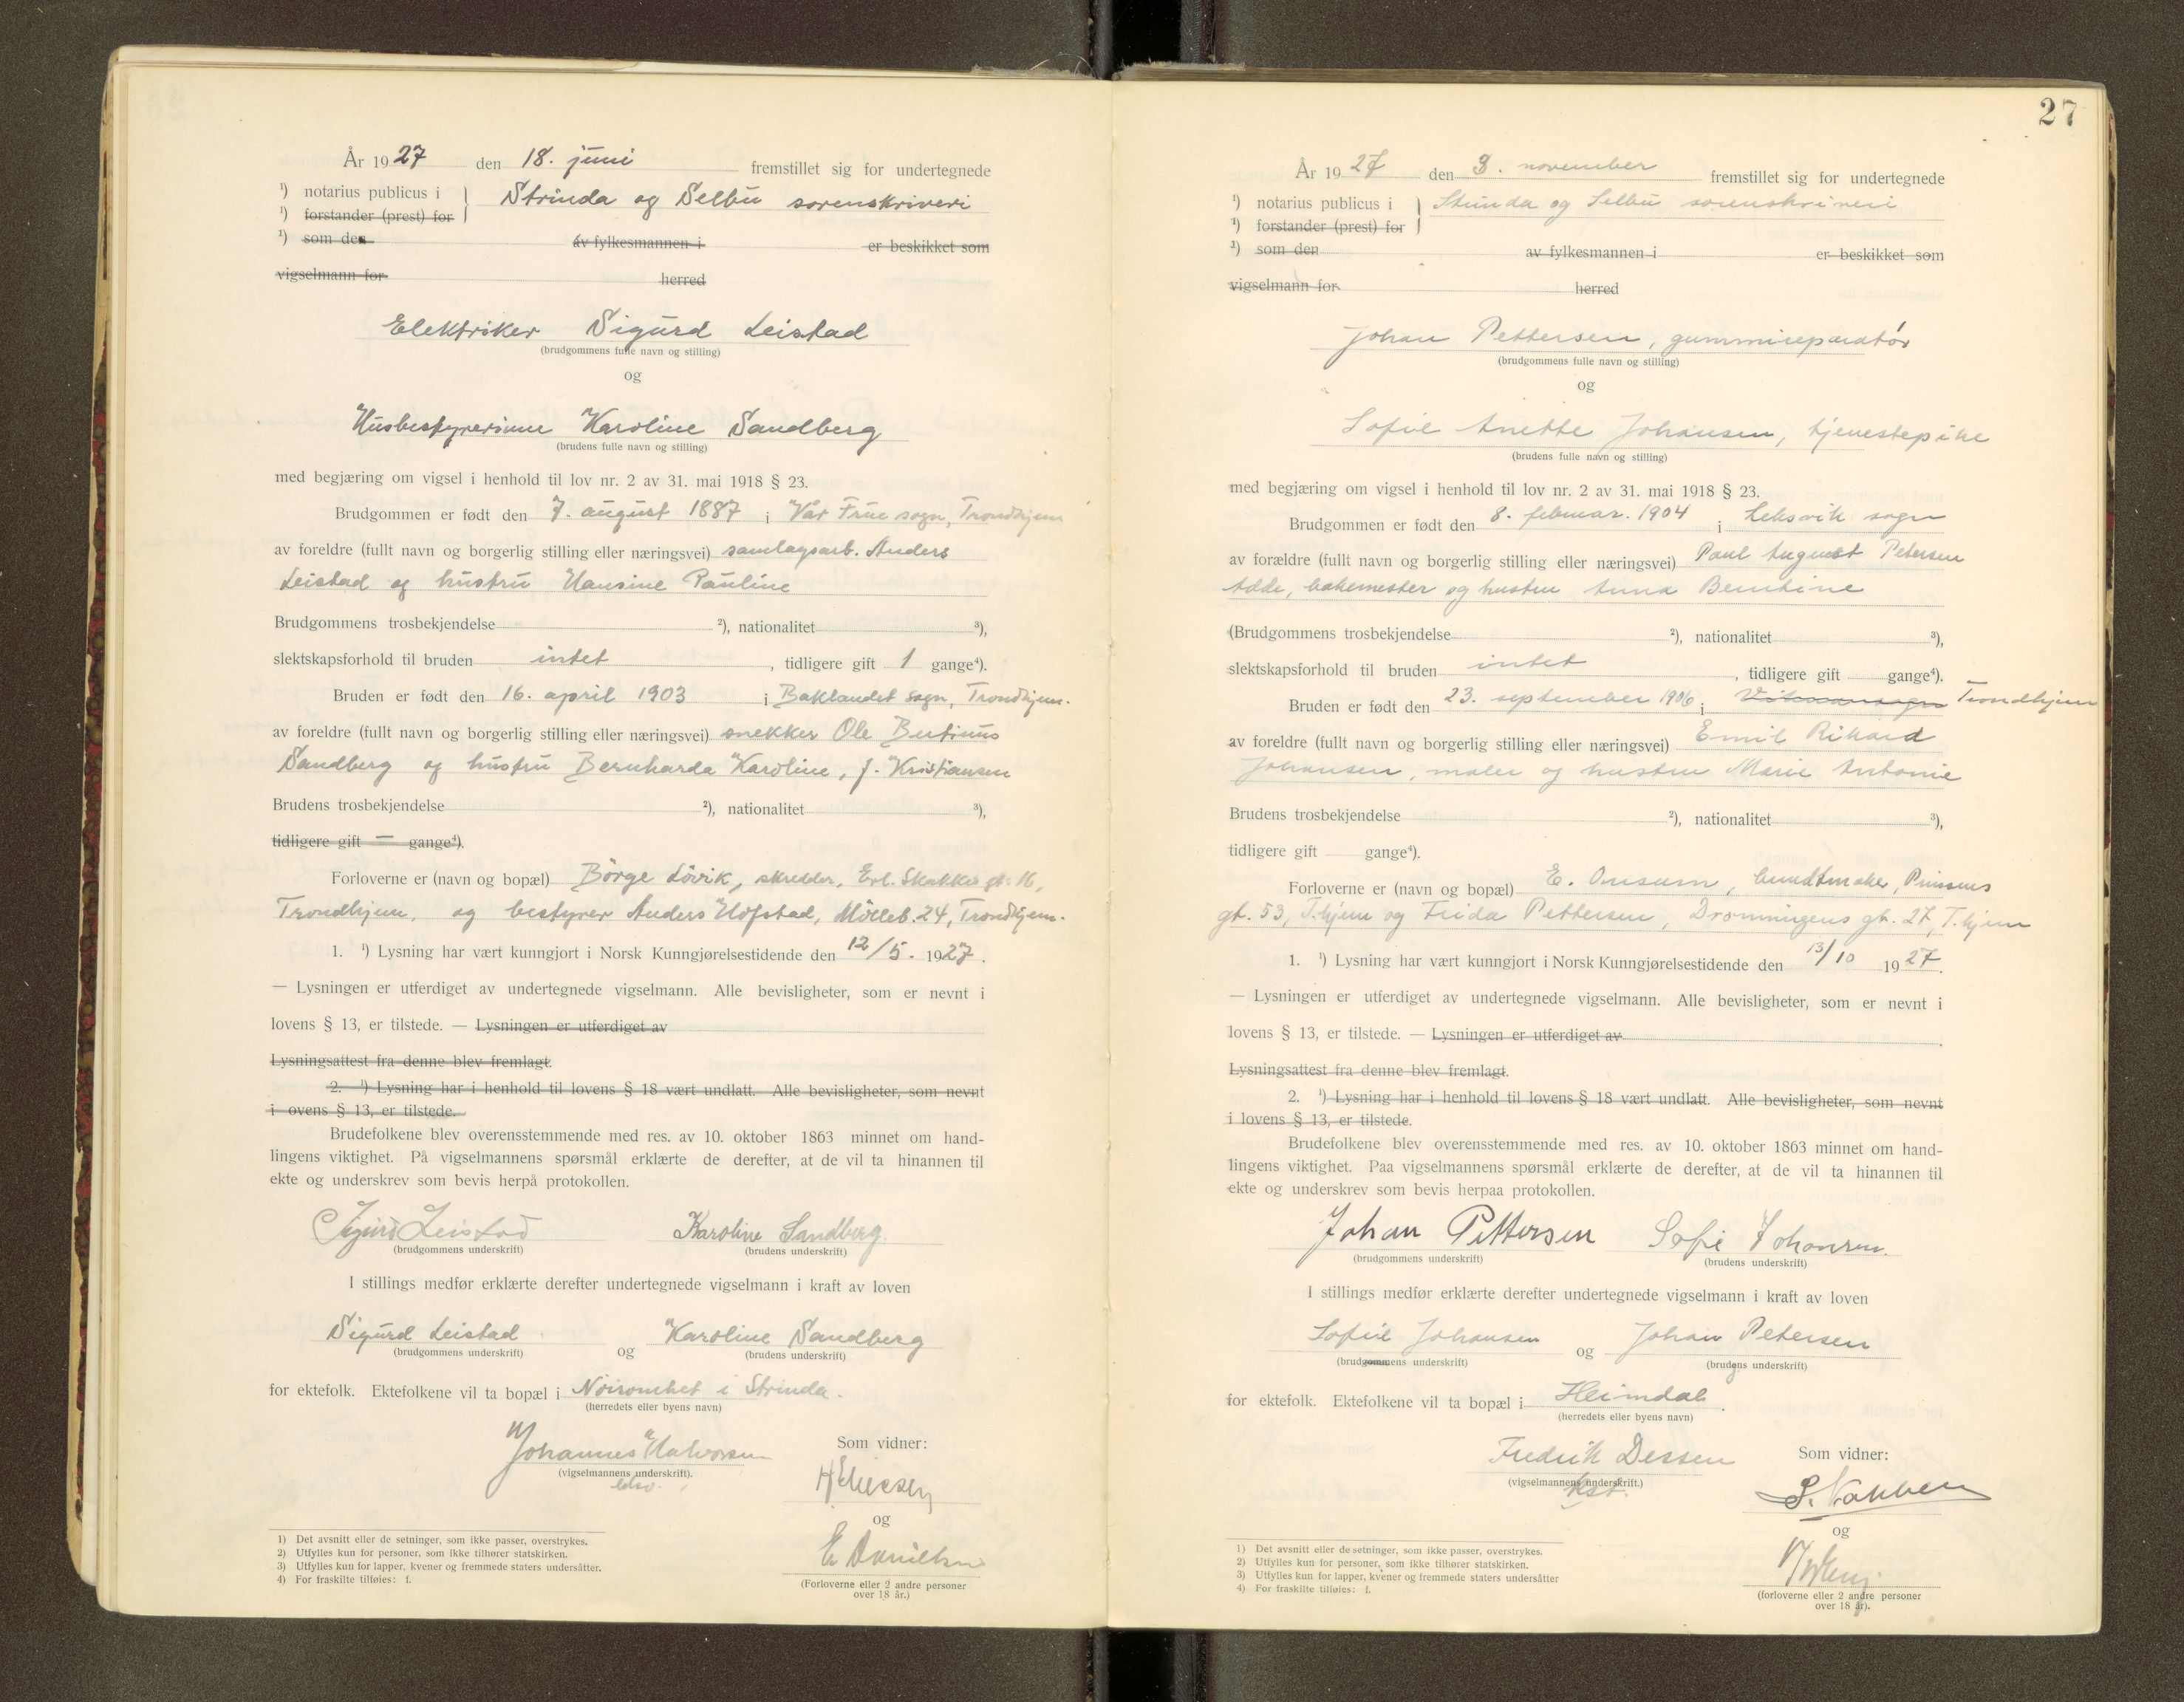 År 1927 den 18. juni fremstillet sig for undertegnede
¹) notarius publicus i } Strinda og Selbu sorenskriveri
¹) forstander (prest) for
¹) som den av fylkesmannen i er beskikket som
vigselmann for herred
Elektriker Sigurd Leistad
(brudgommens fulle navn og stilling)
og
Husbestyrerinne Karoline Sandberg
(brudens fulle navn og stilling)
med begjæring om vigsel i henhold til lov nr. 2 av 31. mai 1918 § 23.
Brudgommen er født den 7. august 1887 i Vår Frue sogn, Trondhjem
av foreldre (fullt navn og borgerlig stilling eller næringsvei) samlagsarb. Anders
Leistad og hustru Hansine Pauline
Brudgommens trosbekjendelse ²), nationalitet ³),
slektskapsforhold til bruden intet, tidligere gift 1 gange⁴).
Bruden er født den 16. april 1903 i Baklandet sogn, Trondhjem.
av foreldre (fullt navn og borgerlig stilling eller næringsvei) snekker Ole Bertinus
Sandberg og hustru Bernharda Karoline, f. Kristiansen
Brudens trosbekjendelse ²), nationalitet ³),
tidligere gift — gange⁴).
Forloverne er (navn og bopæl) Börge Lövik, skredder, Erl. Skakkes gt. 16,
Trondhjem, og bestyrer Anders Hofstad, Mölleb. 24, Trondhjem.
1. ¹) Lysning har vært kunngjort i Norsk Kunngjørelsestidende den 12/5. 1927.
— Lysningen er utferdiget av undertegnede vigselmann. Alle bevisligheter, som er nevnt i
lovens § 13, er tilstede. — Lysningen er utferdiget av
Lysningsattest fra denne blev fremlagt.
2. ¹) Lysning har i henhold til lovens § 18 vært undlatt. Alle bevisligheter, som nevnt
i ovens § 13, er tilstede.
Brudefolkene blev overensstemmende med res. av 10. oktober 1863 minnet om hand-
lingens viktighet. På vigselmannens spørsmål erklærte de derefter, at de vil ta hinannen til
ekte og underskrev som bevis herpå protokollen.
Sigurd Leistad Karoline Sandberg
(brudgommens underskrift) (brudens underskrift)
I stillings medfør erklærte derefter undertegnede vigselmann i kraft av loven
Sigurd Leistad og Karoline Sandberg
(brudgommens underskrift) (brudens underskrift)
for ektefolk. Ektefolkene vil ta bopæl i Nöisomhet i Strinda.
(herredets eller byens navn)
Johannes Halvorsen
(vigselmannens underskrift).
Som vidner:
og
E Danielsen
(Forloverne eller 2 andre personer
over 18 år.)
1) Det avsnitt eller de setninger, som ikke passer, overstrykes.
2) Utfylles kun for personer, som ikke tilhører statskirken.
3) Utfylles kun for lapper, kvener og fremmede staters undersåtter.
4) For fraskilte tilføies: f.
27
År 1927 den 3. november fremstillet sig for undertegnede
¹) notarius publicus i } Strinda og Selbu sorenskriveri
¹) forstander (prest) for
¹) som den av fylkesmannen i er beskikket som
vigselmann for herred
Johan Pettersen, gummireparatör
(brudgommens fulle navn og stilling)
og
Sofie Anette Johansen, tjenestepike
(brudens fulle navn og stilling)
med begjæring om vigsel i henhold til lov nr. 2 av 31. mai 1918 § 23.
Brudgommen er født den 8. februar. 1904 i Leksvik sogn
av forældre (fullt navn og borgerlig stilling eller næringsvei) Paul August Petersen
Adde, bakemester og hustru Anna Berntine
(Brudgommens trosbekjendelse ²), nationalitet ³),
slektskapsforhold til bruden intet, tidligere gift gange⁴).
Bruden er født den 23. september 1906 i Trondhjem
av foreldre (fullt navn og borgerlig stilling eller næringsvei) Emil Rikard
Johansen, maler og hustru Marie Antonie
Brudens trosbekjendelse ²), nationalitet ³),
tidligere gift gange⁴).
Forloverne er (navn og bopæl) E. Onsum, bundtmaker, Prinsens
gt. 53, T.hjem og Frida Pettersen, Dronningens gt. 27, T.hjem
1. ¹) Lysning har vært kunngjort i Norsk Kunngjørelsestidende den 13/10 1927.
— Lysningen er utferdiget av undertegnede vigselmann. Alle bevisligheter, som er nevnt i
lovens § 13, er tilstede. — Lysningen er utferdiget av
Lysningsattest fra denne blev fremlagt.
2. ¹) Lysning har i henhold til lovens § 18 vært undlatt. Alle bevisligheter, som nevnt
i lovens § 13, er tilstede.
Brudefolkene blev overensstemmende med res. av 10. oktober 1863 minnet om hand-
lingens viktighet. Paa vigselmannens spørsmål erklærte de derefter, at de vil ta hinannen til
ekte og underskrev som bevis herpaa protokollen.
Johan Pettersen Sofie Johansen.
(brudgommens underskrift) (brudens underskrift)
I stillings medfør erklærte derefter undertegnede vigselmann i kraft av loven
Sofie Johansen og Johan Petersen
(brudgommens underskrift) (brudens underskrift)
for ektefolk. Ektefolkene vil ta bopæl i Heimdal.
(herredets eller byens navn)
Fredrik Dessen
(vigselmannens underskrift.)
kst.
Som vidner:
og
(forloverne eller 2 andre personer
over 18 år).
1) Det avsnitt eller de setninger, som ikke passer, overstrykes.
2) Utfylles kun for personer, som ikke tilhører statskirken.
3) Utfylles kun for lapper, kvener og fremmede staters undersåtter
4) For fraskilte tilføies: f.